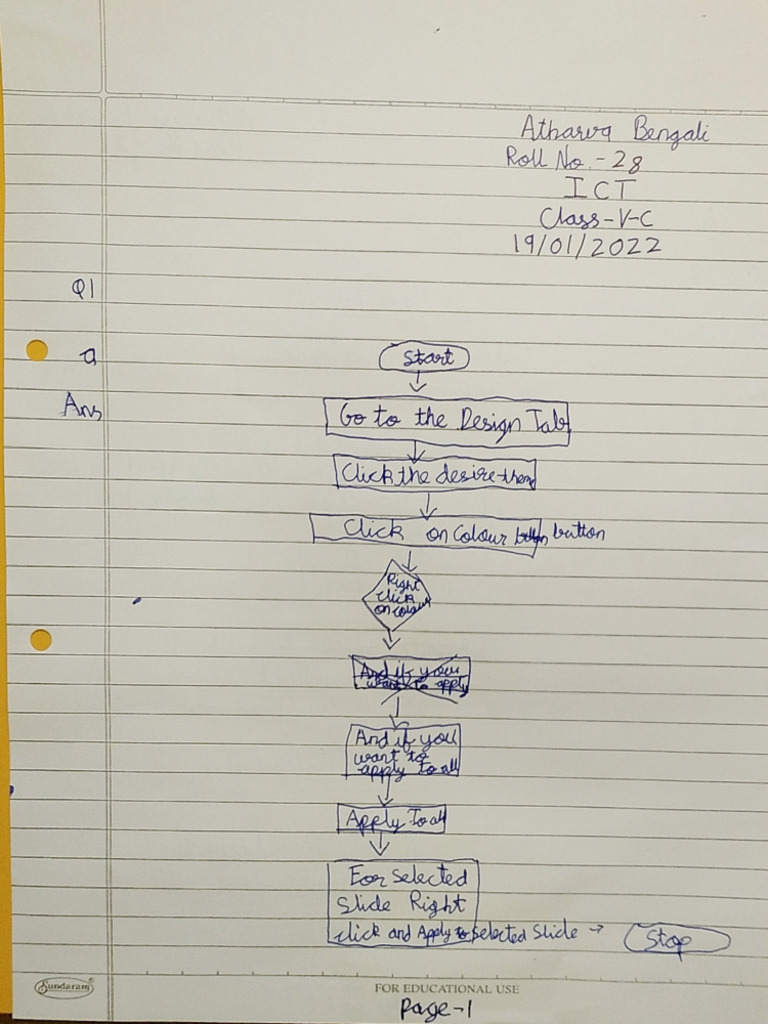 Atharva Bengali
Roll No.-28
ICT
Class-V-C
19/01/2022
Q1
a
Ans
Start
Go to the Design Tab
Click the desire them
Click on Colour button
Right
click
on colour
And if you
want to apply
And if you
want to
apply to all
Apply To all
For selected
slide Right
click and Apply to selected slide →
Stop
Sundaram
FOR EDUCATIONAL USE
Page-1